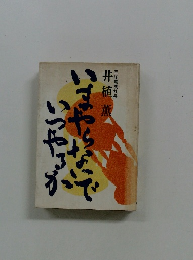 井植 薫
いまやらないで
いつやるか